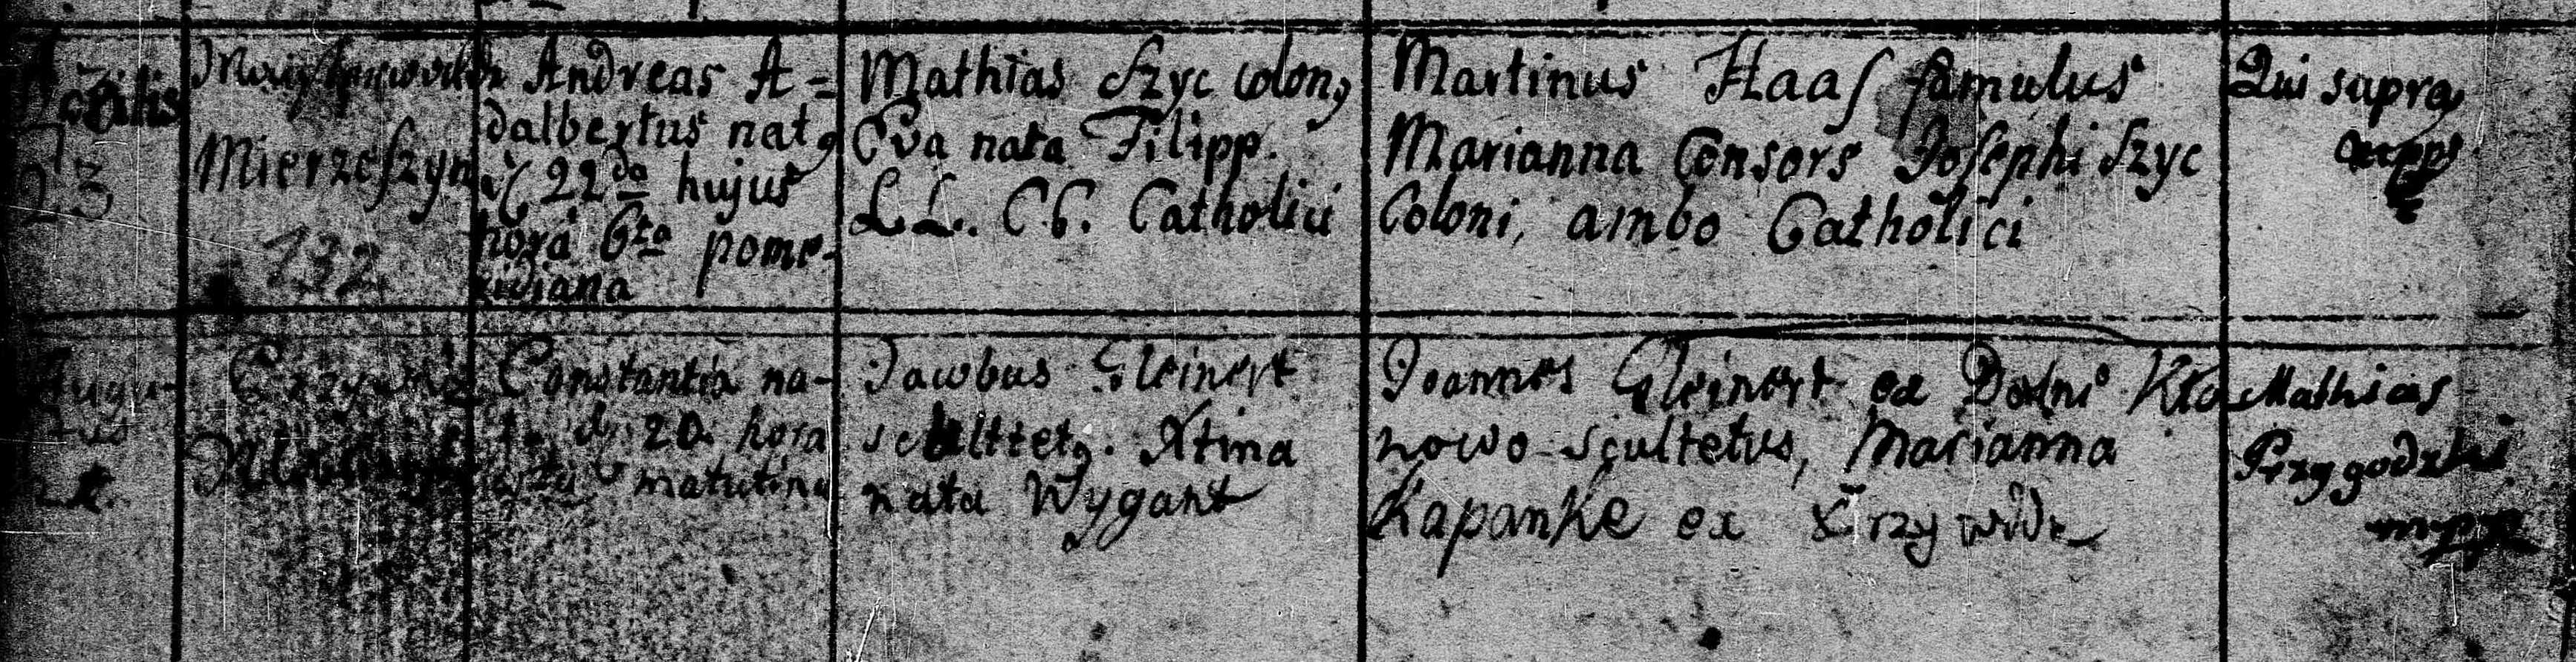 Aprilis
23
Mierzeszyn
132
Andreas A=
dalbertus nat9
22da hujus
hora 6ta pome-
ridiana
Mathias Szyc colon9
Eva nata Filipp.
LL. CC. Catholici
Martinus Haas famulus
Marianna Consors Josephi Szyc
Coloni, ambo Catholici
Qui supra
mpp
Augu-
Constantia na-
ta d. 20 hora
matutina
Jacobus Gleinert
scultet9. Xtina
nata Wygant
Joannes Gleinert ex Dolni Kło
nowo scultetus, Marianna
Kapanke ex Trzy
Mathias
Przygodzki
mpp